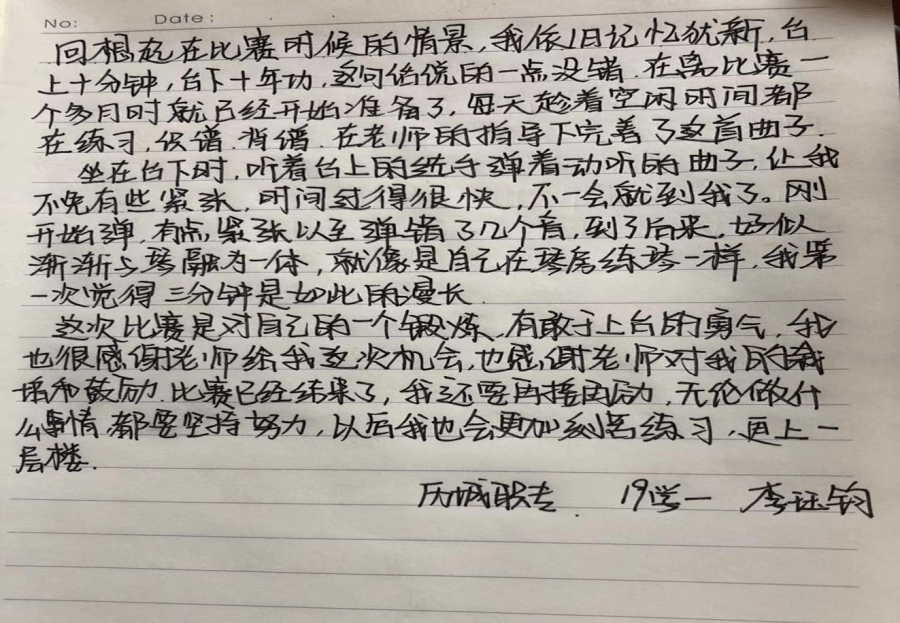 No:
Date:
回想起在比赛时候的情景,我依旧记忆犹新,台
上十分钟,台下十年功,这句俗说的一点没错.在离比赛一
个多月时就已经开始准备了,每天趁着空闲时间都
在练习,识谱.背谱.在老师的指导下完善了这首曲子.
坐在台下时,听着台上的选手弹着动听的曲子,让我
不免有些紧张,时间过得很快,不一会就到我了。刚
开始弹,有点紧张以至弹错了几个音,到了后来,好似
渐渐与琴融为一体,就像是自己在琴房练琴一样,我第
一次觉得三分钟是如此的漫长.
这次比赛是对自己的一个锻炼,有敢于上台的勇气,我
也很感谢老师给我这次机会,也感谢老师对我的栽
培和鼓励.比赛已经结束了,我还要再接再励,无论做什
么事情,都要坚持努力,以后我也会更加刻苦练习,更上一
层楼.
历城职专. 19学一 李珏钧